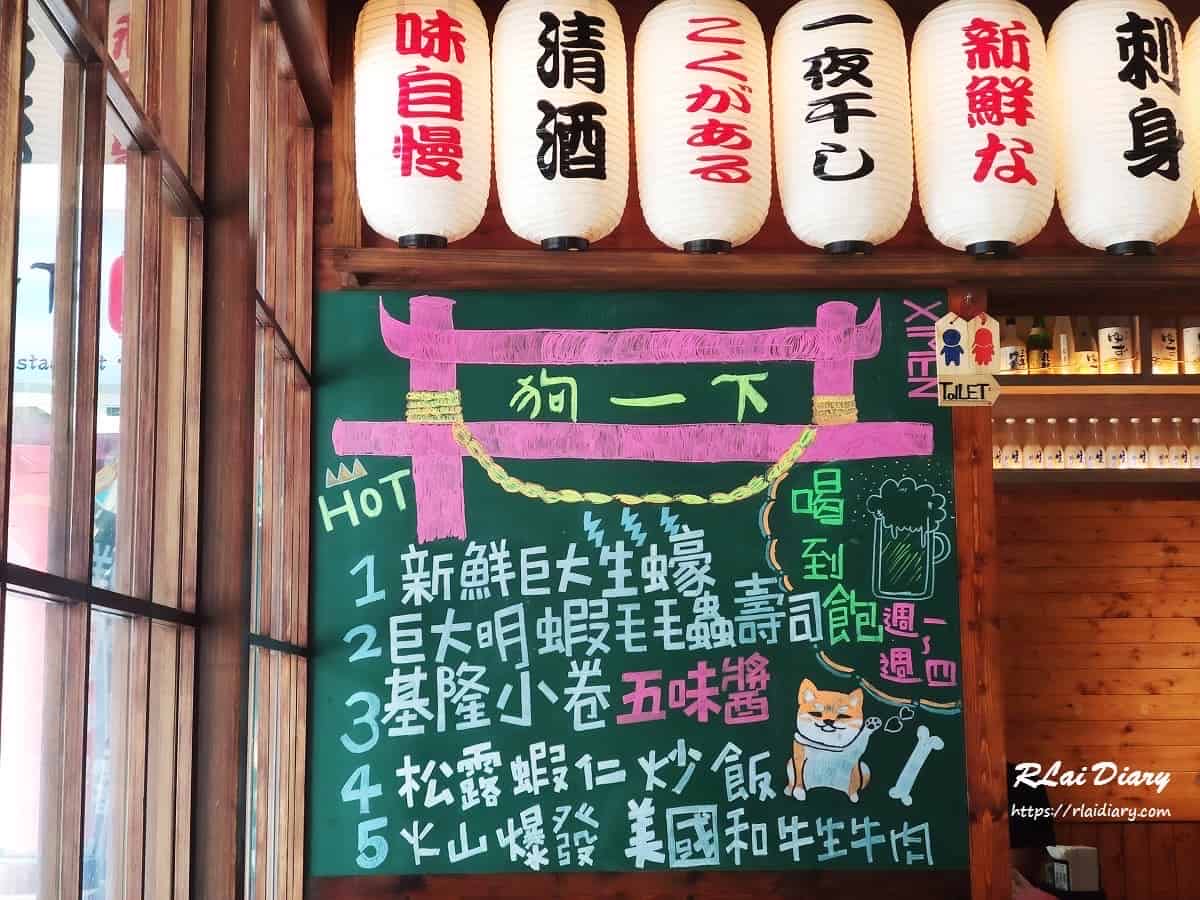 味自慢
清酒
こくがある
一夜干し
新鮮な
刺身
狗一下
NEMIX
TOILET
HOT
喝到飽
週一~週四
1 新鮮巨大生蠔
2 巨大明蝦毛毛蟲壽司
3 基隆小卷五味醬
4 松露蝦仁炒飯
5 火山爆發 美國和牛生牛肉
RLai Diary
https://rlaidiary.com